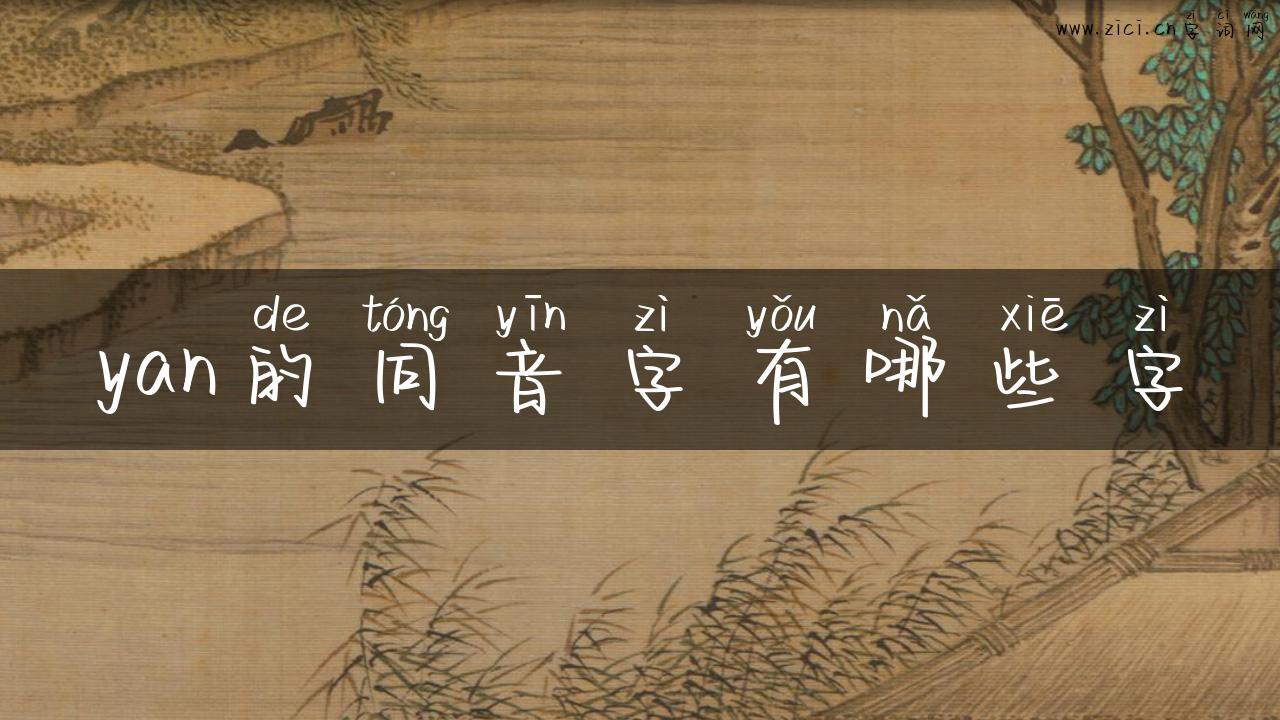 zì cí wǎng
www.zici.cn 字词网
de tóng yīn zì yǒu nǎ xiē zì
yan的同音字有哪些字